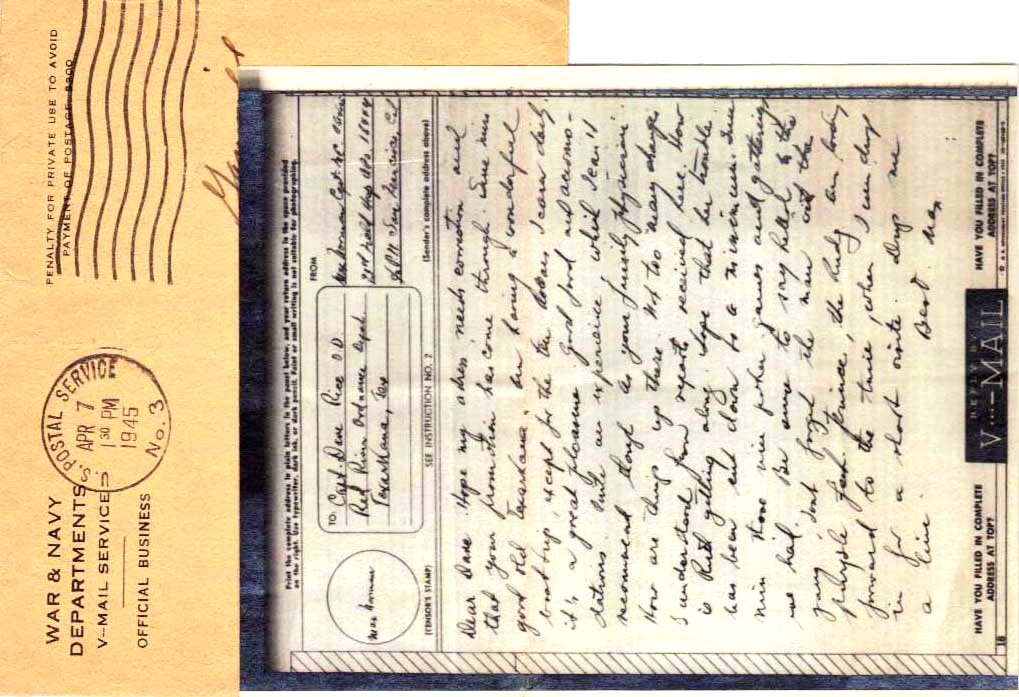 WAR & NAVY
DEPARTMENTS
V-MAIL SERVICE
OFFICIAL BUSINESS
U.S. POSTAL SERVICE
APR 7
1 30 PM
1945
No. 3
PENALTY FOR PRIVATE USE TO AVOID
PAYMENT OF POSTAGE, $300
Print the complete address in plain letters in the panel below, and your return address in the space provided
on the right. Use typewriter, dark ink, or dark pencil. Faint or small writing is not suitable for photographing.
TO: Capt. Dave Rice O.D.
Red River Ordnance Depot
Texarkana, Tex
FROM
Max Norman Capt. M.C.
APO
San Francisco, Cal
Max Norman
(CENSOR'S STAMP)
SEE INSTRUCTION NO. 2
(Sender's complete address above)
Dear Dave: Hope my address needs correction and
that your promotion has come through. Since
good old Texarkana, am having a wonderful
boat trip, except for the ten dollars I earn daily
it's a great pleasure. Good food and accomo-
dations. Quite an experience which I can't
recommend though as your family physician.
How are things up there? Not too many changes
I understand from reports received here. How
is Ruth getting along. Hope that her trouble
has been cut down to a minimum. Sure
miss those nice poker games and gatherings
we had. Be sure to say hello to the
gang. Don't forget the man and the
purple
forward to the time, when I can drop
in for a short drop me
a line.
Best
Max
HAVE YOU FILLED IN COMPLETE
ADDRESS AT TOP?
REPLY BY
V···—MAIL
HAVE YOU FILLED IN COMPLETE
ADDRESS AT TOP?